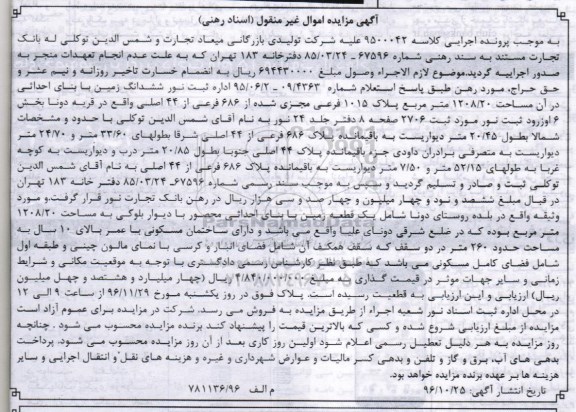 آگهی مزایده اموال غیر منقول (اسناد رهنی)
به موجب پرونده اجرایی کلاسه ۹۵۰۰۰۴۲ علیه شرکت تولیدی بازرگانی میعاد تجارت و شمس الدین توکلی له بانک
تجارت مستند به سند رهنی شماره ۶۷۵۹۶- ۸۵/۰۳/۲۴ دفترخانه ۱۸۳ تهران که به علت عدم انجام تعهدات منجر به
صدور اجراییه گردید.موضوع لازم الاجراء وصول مبلغ ۶۹۴۴۳۰۰۰۰ ریال به انضمام خسارت تاخیر روزانه و نیم عشر و
حق حراج، مورد رهن طبق پاسخ استعلام شماره ۰۹۴۳۶۳- ۹۵/۰۶/۲ اداره ثبت نور ششدانگ زمین با بنای احداثی
در آن مساحت ۱۲۰۸/۲۰ متر مربع پلاک ۱۰۱۵ فرعی مجزی شده از ۶۸۶ فرعی از ۴۴ اصلی واقع در قریه دونا بخش
۶.اوزرود ثبت نور مورد ثبت ۲۷۰۶ صفحه ۸ دفتر جلد ۲۴ نور به نام آقای شمس الدین توکلی با حدود و مشخصات
شمالا بطول ۲۰/۴۵ متر دیواریست به باقیمانده پلاک ۶۸۶ فرعی از ۴۴ اصلی شرقا بطولهای ۳۳/۶۰ متر و ۲۴/۷۰ متر
دیواریست به متصرفی برادران داودی جزء باقیمانده پلاک ۴۴ اصلی جنوبا بطول ۲۰/۸۵ متر درب و دیواریست به کوچه
غربا به طولهای ۵۲/۱۵ متر و ۷/۵۰ متر دیواریست به باقیمانده پلاک ۶۸۶ فرعی از ۴۴ اصلی به نام آقای شمس الدین
توکلی ثبت و صادر و تسلیم گردید و سپس به موجب سند رسمی شماره ۶۷۵۹۶- ۸۵/۰۳/۲۴ دفتر خانه ۱۸۳ تهران
در قبال مبلغ ششصد و نود و چهار میلیون و چهار صد و سی هزار ریال در رهن بانک تجارت نور قرار گرفت.و مورد
وثیقه واقع در بلده روستای دونا شامل یک قطعه زمین با بنای احداثی محصور با دیوار بلوکی به مساحت ۱۲۰۸/۲۰
متر مربع بوده که در ضلع شرقی دونای علیا واقع می باشد و دارای ساختمان مسکونی با عمر بالای ۱۰ سال به
مساحت حدود ۲۶۰ متر در دو سقف که سقف همکف آن شامل فضای انبار و کرسی با نمای مالون چینی و طبقه اول
شامل فضای کامل مسکونی می باشد که طبق نظر کارشناس رسمی دادگستری با توجه به موقعیت مکانی و شرایط
زمانی و سایر جهات موثر در قیمت گذاری به مبلغ ۴/۸۴۰/۰۰۰/۰۰۰ ریال (چهار میلیارد و هشتصد و چهل میلیون
ریال) ارزیابی و این ارزیابی به قطعیت رسیده است. پلاک فوق در روز یکشنبه مورخ ۹۶/۱۱/۲۹ از ساعت ۹ الی ۱۲
در محل اداره ثبت اسناد نور شعبه اجراء از طریق مزایده به فروش می رسد. شرکت در مزایده برای عموم آزاد است
مزایده از مبلغ ارزیابی شروع شده و کسی که بالاترین قیمت را پیشنهاد کند برنده مزایده محسوب می شود . چنانچه
روز مزایده به هر دلیل تعطیل رسمی اعلام شود اولین روز کاری بعد از آن روز مزایده محسوب می شود. پرداخت
بدهی های آب، برق و گاز و تلفن و بدهی کسر مالیات و عوارض شهرداری و غیره و هزینه های نقل و انتقال اجرایی و سایر
هزینه ها بر عهده برنده مزایده خواهد بود.
تاریخ انتشار آگهی: ۹۶/۱۰/۲۵ م الف ۷۸۱۱۳۶/۹۶